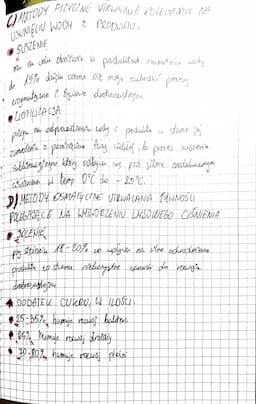 C) METODY FIZYCZNE UTRWALANIA POLEGAJĄCE NA
USUNIĘCIU WODY Z PRODUKTU.
• SUSZENIE
ma na celu obniżenie w produktach zawartości wody
do 15% dzięki czemu nie mogą zachodzić procesy
enzymatyczne i życiowe drobnoustrojów
• LIOFILIZACJA
polega na odprowadzeniu wody z produktu w stanie
zamrożenia z pominięciem fazy ciekłej, to proces suszenia
sublimacyjnego który odbywa się pod silnie
ciśnieniem w temp 0°C do -25°C.
D) METODY OSMOTYCZNE UTRWALANIA ŻYWNOŚCI
POLEGAJĄCE NA WYTWORZENIU WYSOKIEGO CIŚNIENIA
• SOLENIE
przy stężeniu 18-20% co wpływa na silne odwodnienie
produktu co stwarza niekorzystne warunki do rozwoju
drobnoustrojów
• DODATEK CUKRU, W ILOŚCI.
• 25-35% hamuje rozwój bakterii
• 65% hamuje rozwój drożdży
• 70-80% hamuje rozwój pleśni